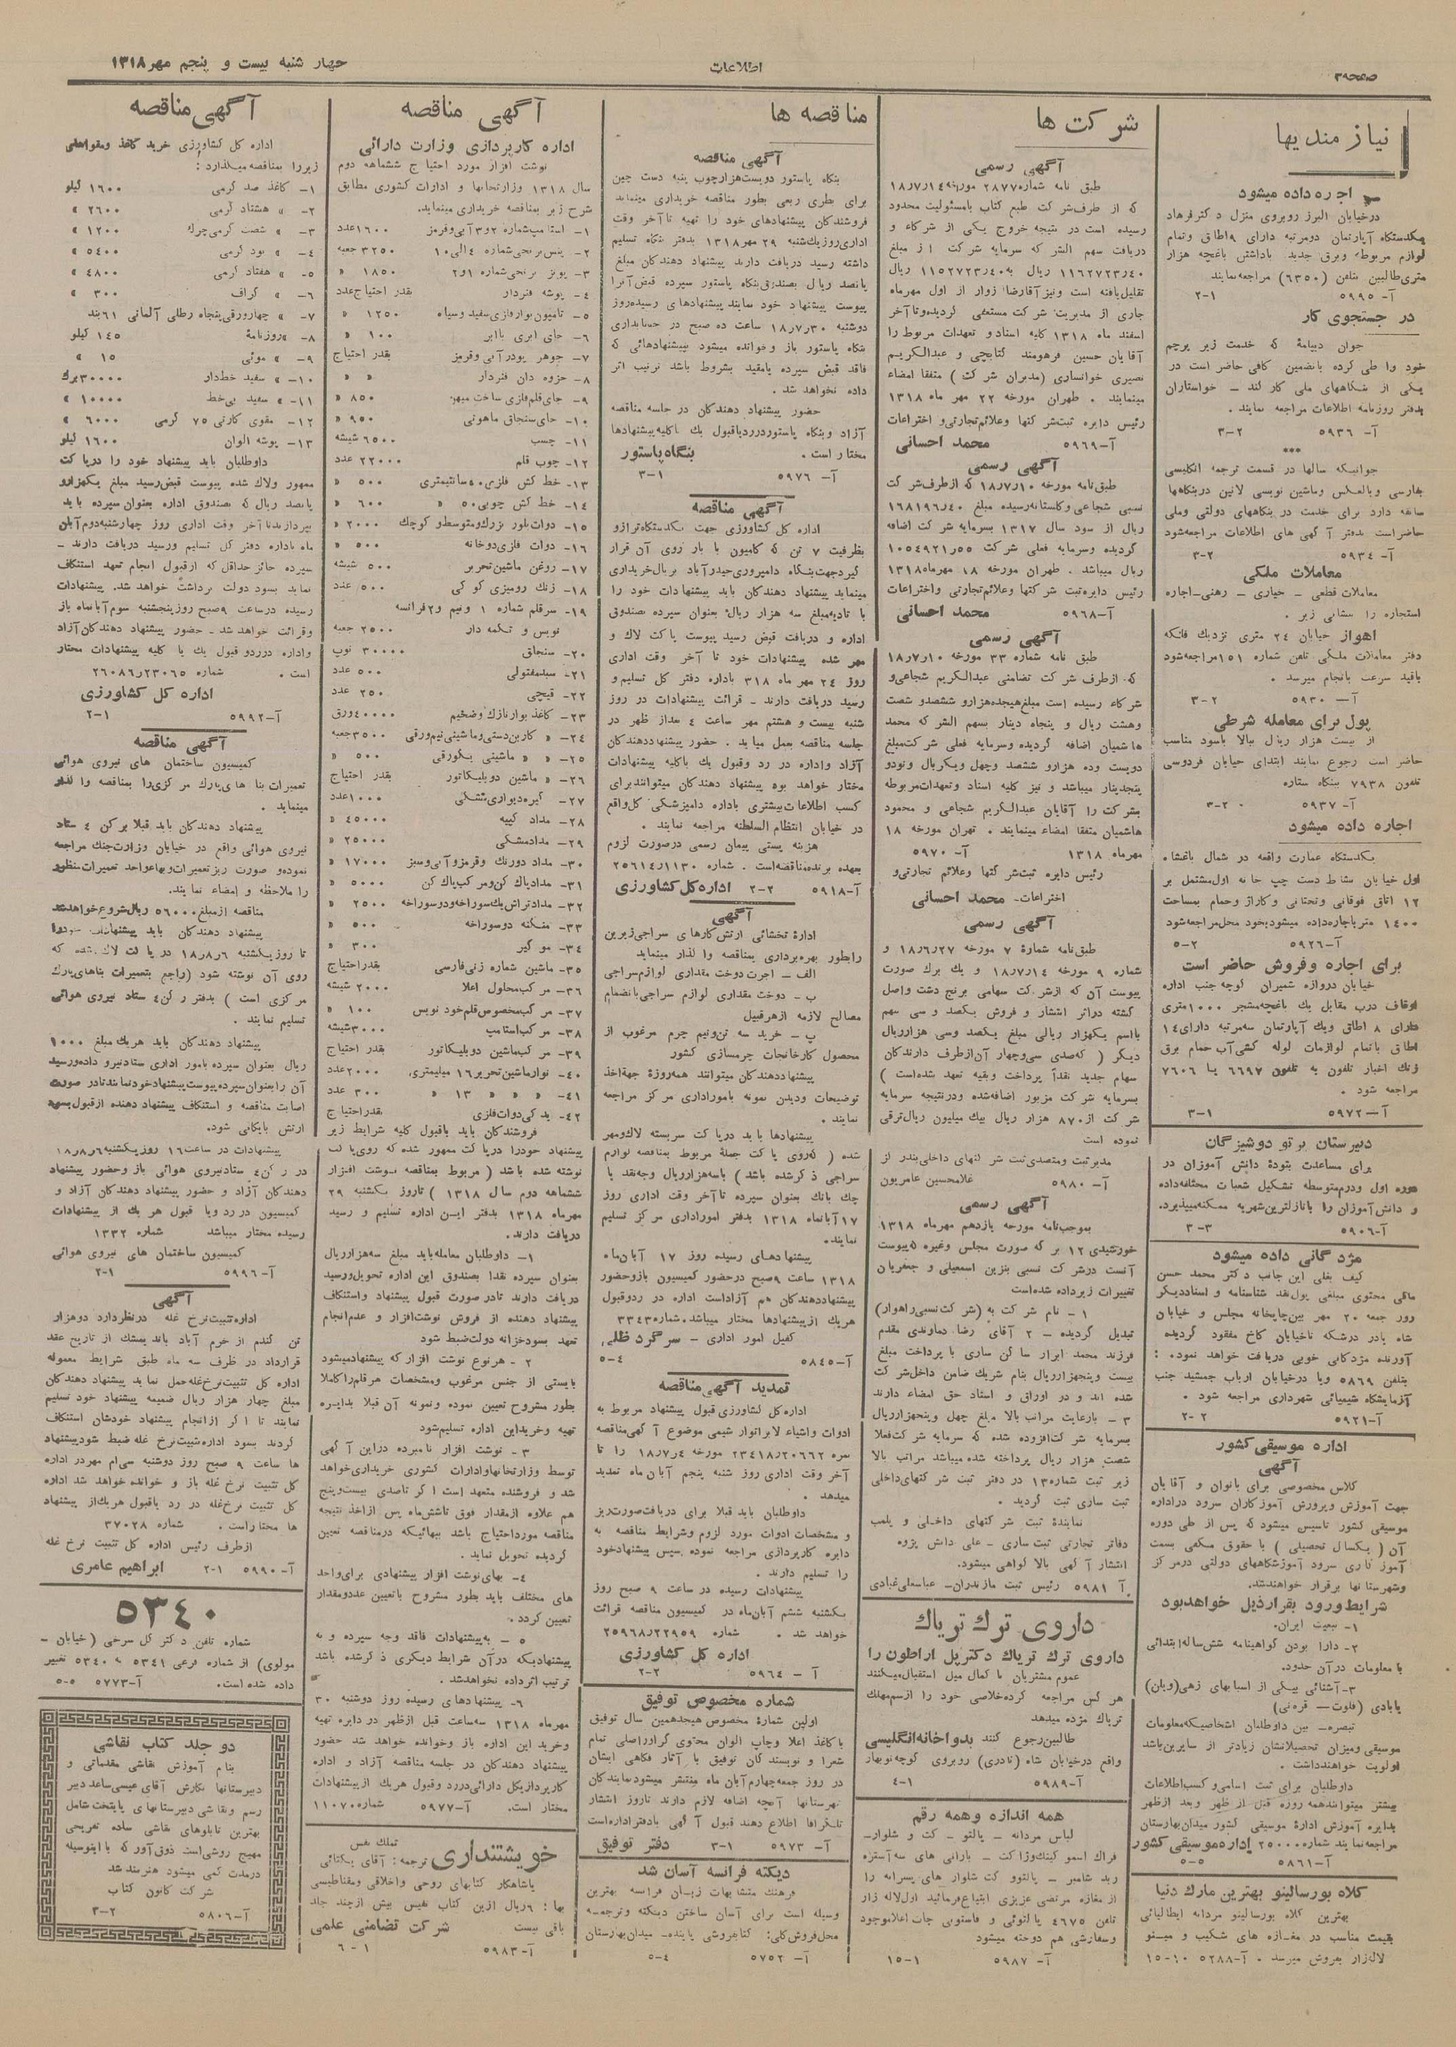 صفحه ۳
اطلاعات
چهار شنبه بیست و پنجم مهر ۱۳۱۸
نیاز مندیها
اجره داده میشود
درخیابان البرز روبروی منزل دکتر فرهاد
یکدستگاه آپارتمان دومرتبه دارای ۹ اطاق وتمام
لوازم مربوطه وبرق جدید باداشتن باغچه هزار
متری طالبین بتلفن (۶۳۵۰) مراجعه نمایند
آ- ۵۹۹۵ ۲-۱
در جستجوی کار
جوان دیپلمه که خدمت زیر پرچم
خود را طی کرده باتضمین کافی حاضر است در
یکی از بنگاههای ملی کار کند – خواستاران
بدفتر روزنامه اطلاعات مراجعه نمایند .
آ- ۵۹۳۶ ۳-۲
***
جوانیکه سالها در قسمت ترجمه انگلیسی
بفارسی وبالعکس وماشین نویسی لاتین دربنگاهها
سابقه دارد برای خدمت در بنگاههای دولتی وملی
حاضراست بدفتر آگهی های اطلاعات مراجعه شود
آ- ۵۹۳۴ ۳-۲
معاملات ملکی
معاملات قطعی – خیاری – رهنی – اجاره
استجاره را بنشانی زیر .
اهواز خیابان ۲۴ متری نزدیک فلکه
دفتر معاملات ملکی تلفن شماره ۱۵۱ مراجعه شود
باقید سرعت بانجام میرسد .
آ – ۵۹۳۰ ۳-۲
پول برای معامله شرطی
از بیست هزار ریال ببالا باسود مناسب
حاضر است رجوع نمایند ابتدای خیابان فردوسی
تلفون ۷۹۳۸ بنگاه ستاره
آ- ۵۹۳۷ ۳-۲
اجاره داده میشود
یکدستگاه عمارت واقعه در شمال باغشاه
اول خیابان دست چپ خانه اول مشتمل بر
۱۲ اتاق فوقانی وتحتانی وگاراژ وحمام بمساحت
۱۴۰۰ متر باجاره داده میشود بخود محل مراجعه شود
آ- ۵۹۲۶ ۵-۲
برای اجاره وفروش حاضر است
خیابان دروازه شمیران کوچه جنب اداره
اوقاف درب مقابل یک باغچه مشجر ۱۰۰۰ متری
دارای ۸ اطاق ویک آپارتمان سه مرتبه دارای ۱۴
اطاق باتمام لوازمات لوله کشی آب حمام برق
زنگ اخبار تلفون به تلفون ۶۶۹۷ یا ۷۶۰۶
مراجعه شود .
آ – ۵۹۷۲ ۳-۱
دبیرستان پرتو دوشیزگان
برای مساعدت بتودهٔ دانش آموزان در
دوره اول ودوم متوسطه تشکیل شعبات مختلفه داده
و دانش آموزان را بانازلترین شهریه ممکنه میپذیرد.
آ-۵۹۰۶ ۳-۳
مژدگانی داده میشود
کیف بغلی این جانب دکتر محمد حسن
ملکی محتوی مبلغی پول نقد شناسنامه و اسناد دیگر
روز جمعه ۲۰ مهر بین چاپخانه مجلس و خیابان
شاه یادر درشکه تاخیابان کاخ مفقود گردیده
آورنده مژدگانی خوبی دریافت خواهد نمود :
بتلفن ۵۸۶۹ ویا درخیابان ارباب جمشید جنب
آزمایشگاه شیمیائی شهرداری مراجعه شود .
آ-۵۹۲۱ ۲-۲
اداره موسیقی کشور
آگهی
کلاس مخصوصی برای بانوان و آقایان
جهت آموزش وپرورش آموزگاران سرود دراداره
موسیقی کشور تاسیس میشود که پس از طی دوره
آن ( یکسال تحصیلی ) با حقوق مکفی بسمت
آموزگاری سرود آموزشگاههای دولتی در مرکز
وشهرستانها برقرار خواهند شد.
شرایط ورود بقرار ذیل خواهد بود
۱- تبعیت ایران.
۲- دارا بودن گواهینامه شش ساله ابتدائی
یا معلومات درآن حدود.
۳-آشنائی بیکی از اسبابهای زهی(ویلن)
یابادی (فلوت – قره نی)
تبصره – بین داوطلبان اشخاصیکه معلومات
موسیقی ومیزان تحصیلاتشان زیادتر از سایرین باشد
اولویت خواهند داشت .
داوطلبان برای ثبت اسامی وکسب اطلاعات
بیشتر میتوانند همه روزه قبل از ظهر وبعد از ظهر
بدایره آموزش ادارهٔ موسیقی کشور میدان بهارستان
مراجعه نمایند شماره ۲۵۰۰۰ اداره موسیقی کشور
آ-۵۸۶۱ ۵-۵
کلاه بورسالینو بهترین مارک دنیا
بهترین کلاه بورسالینو مردانه ایطالیائی
بقیمت مناسب در مغازه های شکیب و مینو
لاله زار بفروش میرسد . آ-۵۲۸۸ ۱۰-۱۵
شرکت ها
آگهی رسمی
طبق نامه شماره ۲۸۷۷ مورخه ۱۸/۷/۱۴
که از طرف شرکت طبع کتاب بامسئولیت محدود
رسیده است در نتیجه خروج یکی از شرکاء و
دریافت سهم الشرکه سرمایه شرکت از مبلغ
۱۱۶۲۷۲۳/۴۰ ریال به ۱۱۵۲۷۲۳/۴۰ ریال
تقلیل یافته است ونیز آقارضا زوار از اول مهرماه
جاری از مدیریت شرکت مستعفی گردیده وتا آخر
اسفند ماه ۱۳۱۸ کلیه اسناد و تعهدات مربوط را
آقایان حسین فرهومند کتابچی و عبدالکریم
نصیری خوانساری (مدیران شرکت ) متفقا امضاء
مینمایند . طهران مورخه ۲۲ مهر ماه ۱۳۱۸
رئیس دایره ثبت شرکتها وعلائم تجارتی و اختراعات
آ-۵۹۶۹ محمد احسانی
آگهی رسمی
طبق نامه مورخه ۱۸/۷/۱۰ که از طرف شرکت
نسبی شجاعی وکاستانه رسیده مبلغ ۱۶۸۱۹۶/۴۰
ریال از سود سال ۱۳۱۷ بسرمایه شرکت اضافه
گردیده وسرمایه فعلی شرکت ۱۰۵۴۹۲۱/۵۵
ریال میباشد . طهران مورخه ۱۸ مهرماه ۱۳۱۸
رئیس دایره ثبت شرکتها وعلائم تجارتی واختراعات
آ-۵۹۶۸ محمد احسانی
آگهی رسمی
طبق نامه شماره ۳۳ مورخه ۱۸/۷/۱۰
که از طرف شرکت تضامنی عبدالکریم شجاعی و
شرکاء رسیده است مبلغ هیجده هزارو ششصدو شصت
وهشت ریال و پنجاه دینار بسهم الشرکه محمد
هاشمیان اضافه گردیده وسرمایه فعلی شرکت مبلغ
دویست وده هزارو ششصد وچهل ویکریال ونودو
پنجدینار میباشد و نیز کلیه اسناد وتعهدات مربوطه
بشرکت را آقایان عبدالکریم شجاعی و محمود
هاشمیان متفقا امضاء مینمایند . تهران مورخه ۱۸
مهرماه ۱۳۱۸ آ- ۵۹۷۰
رئیس دایره ثبت شرکتها وعلائم تجارتی و
اختراعات- محمد احسانی
آگهی رسمی
طبق نامه شمارهٔ ۷ مورخه ۱۸/۶/۲۷ و
شماره ۹ مورخه ۱۸/۷/۱۴ و یک برک صورت
پیوست آن که از شرکت سهامی برنج دشت واصل
گشته دوائر انتشار و فروش یکصد و سی سهم
بااسم یکهزار ریالی مبلغ یکصد وسی هزار ریال
دیگر ( که صدی سی وچهار آن از طرف دارندگان
سهام جدید نقداً پرداخت وبقیه تعهد شده است )
بسرمایه شرکت مزبور اضافه شده ودر نتیجه سرمایه
شرکت از ۸۷۰ هزار ریال بیک میلیون ریال ترقی
نموده است
مدیر ثبت ومتصدی ثبت شرکتهای داخلی بندر
آ- ۵۹۸۰ غلامحسین عامریون
آگهی رسمی
بموجب نامه مورخه یازدهم مهرماه ۱۳۱۸
خورشیدی ۱۲ برگه صورت مجلس وغیره که پیوست
آنست درشرکت نسبی بنزین اسمعیلی و جعفریان
تغییرات زیر داده شده است
۱ – نام شرکت به (شرکت نسبی راهوار)
تبدیل گردیده – ۲ آقای رضا دماوندی مقدم
فرزند محمد ابرار ساکن ساری با پرداخت مبلغ
بیست وپنجهزار ریال بنام شریک ضامن داخل شرکت
شده اند و در اوراق و اسناد حق امضاء دارند
۳ – بارعایت مراتب بالا مبلغ چهل وپنجهزار ریال
بسرمایه شرکت افزوده شده که سرمایه شرکت فعلا
شصت هزار ریال پرداخته شده میباشد مراتب بالا
زیر ثبت شماره ۱۳ در دفتر ثبت شرکتهای داخلی
ثبت ساری ثبت گردید .
نمایندهٔ ثبت شرکتهای داخلی و پلمب
دفاتر تجارتی ثبت ساری – علی دانش پژوه
انتشار آگهی بالا گواهی میشود.
آ ۵۹۸۱ رئیس ثبت مازندران- عباسعلی قبادی
داروی ترک تریاک
داروی ترک تریاک دکتر پل اراطون را
عموم مشتریان با کمال میل استقبال میکنند
هر کس مراجعه کرده خلاصی خود را از سم مهلک
تریاک مژده میدهد
طالبین رجوع کنند بدواخانه انگلیسی
واقع درخیابان شاه (نادری) روبروی کوچه نوبهار
آ- ۵۹۸۹ ۴-۱
همه اندازه وهمه رقم
لباس مردانه – پالتو – کت و شلوار-
فراک اسموکینگ وژاکت – بارانی های سه آستره
ربد شامبر – پالتوو کت شلوار های پسرانه را
از مغازه مرتضی عزیزی ابتیاع فرمائید اول لاله زار
تلفن ۴۶۷۵ پالتوئی و فاستونی جات اعلا موجود
وسفارشی هم دوخته میشود
آ- ۵۹۸۷ ۱۵-۱
مناقصه ها
آگهی مناقصه
بنگاه پاستور دویست هزار چوب پنبه دست چین
برای بطری ربعی بطور مناقصه خریداری مینماید
فروشندگان پیشنهادهای خود را تهیه تا آخر وقت
اداری روز یکشنبه ۲۹ مهر ۱۳۱۸ بدفتر بنگاه تسلیم
داشته رسید دریافت دارند پیشنهاد دهندگان مبلغ
پانصد ریال بصندوق بنگاه پاستور سپرده قبض آنرا
پیوست پیشنهاد خود نمایند پیشنهادهای رسیده روز
دوشنبه ۱۸/۷/۳۰ ساعت ده صبح در حسابداری
بنگاه پاستور باز وخوانده میشود پیشنهادهائی که
فاقد قبض سپرده یامقید بشروط باشد ترتیب اثر
داده نخواهد شد .
حضور پیشنهاد دهندگان در جلسه مناقصه
آزاد وبنگاه پاستور دررد یاقبول یک یا کلیه پیشنهادها
مختار است . بنگاه پاستور
آ- ۵۹۷۶ ۳-۱
آگهی مناقصه
اداره کل کشاورزی جهت یکدستگاه ترازو
بظرفیت ۷ تن که کامیون با بار روی آن قرار
گیرد جهت بنگاه دامپروری حیدر آباد بریال خریداری
مینماید پیشنهاد دهندگان باید پیشنهادات خود را
با تادیه مبلغ سه هزار ریال بعنوان سپرده بصندوق
اداره و دریافت قبض رسید پیوست پاکت لاک و
مهر شده پیشنهادات خود تا آخر وقت اداری
روز ۲۴ مهر ماه ۳۱۸ باداره دفتر کل تسلیم و
رسید دریافت دارند – قرائت پیشنهادات در روز
شنبه بیست و هشتم مهر ساعت ۴ بعد از ظهر در
جلسه مناقصه بعمل میاید . حضور پیشنهاد دهندگان
آزاد واداره در رد وقبول یک یا کلیه پیشنهادات
مختار خواهد بود پیشنهاد دهندگان میتوانند برای
کسب اطلاعات بیشتری باداره دامپزشکی کل واقع
در خیابان انتظام السلطنه مراجعه نمایند .
هزینه بستن پیمان رسمی درصورت لزوم
بعهده برنده مناقصه است . شماره ۲۵۶۱۴/۱۱۳۰
آ-۵۹۱۸ ۲-۲ اداره کل کشاورزی
آگهی
ادارهٔ تخشائی ارتش کارهای سراجی زیرین
رابطور بهره برداری بمناقصه وا گذار مینماید
الف – اجرت دوخت مقداری لوازم سراجی
ب – دوخت مقداری لوازم سراجی بانضمام
مصالح لازمه از هر قبیل
پ – خرید سه تن ونیم چرم مرغوب از
محصول کارخانجات چرمسازی کشور
پیشنهاد دهندگان میتوانند همه روزهٔ جهة اخذ
توضیحات ودیدن نمونه بامور اداری مرکز مراجعه
نمایند .
پیشنهادها باید درپاکت سربسته لاک ومهر
شده ( که روی پاکت جملهٔ مربوط بمناقصه لوازم
سراجی ذکر شده باشد ) باسه هزار ریال وجه نقد یا
چک بانک بعنوان سپرده تا آخر وقت اداری روز
۱۷ آبانماه ۱۳۱۸ بدفتر امور اداری مرکز تسلیم
نمایند.
پیشنهادهای رسیده روز ۱۷ آبان ماه
۱۳۱۸ ساعت ۹ صبح درحضور کمیسیون باز وحضور
پیشنهاد دهندگان هم آزاد است اداره در رد وقبول
هریک از پیشنهادها مختار میباشد. شماره ۳۳۴۳
کفیل امور اداری – سرگرد ظلی
آ- ۵۸۴۵ ۵-۴
تمدید آگهی مناقصه
اداره کل کشاورزی قبول پیشنهاد مربوط به
ادوات واشیاء لابراتوار شیمی موضوع آگهی مناقصه
نمره ۲۳۴۱۸/۲۰۶۶۲ مورخه ۱۸/۷/۴ را تا
آخر وقت اداری روز شنبه پنجم آبان ماه تمدید
میدهد .
داوطلبان باید قبلا برای دریافت صورت ریز
و مشخصات ادوات مورد لزوم وشرایط مناقصه به
دایره کارپردازی مراجعه نموده سپس پیشنهاد خود
را تسلیم دارند .
پیشنهادات رسیده در ساعت ۹ صبح روز
یکشنبه ششم آبان ماه در کمیسیون مناقصه قرائت
خواهد شد . شماره ۲۵۹۶۸/۲۲۹۵۹
اداره کل کشاورزی
آ – ۵۹۶۴ ۲-۲
شماره مخصوص توفیق
اولین شمارهٔ مخصوص هیجدهمین سال توفیق
با کاغذ اعلا وچاپ الوان محتوی گراور اصلی تمام
شعرا و نویسندگان توفیق با آثار فکاهی ایشان
در روز جمعه چهارم آبان ماه منتشر میشود نمایندگان
شهرستانها آنچه اضافه لازم دارند تا روز انتشار
تلگرافا اطلاع دهند قبول آگهی بادفتر اداره است
آ- ۵۹۷۳ ۳-۱ دفتر توفیق
دیکته فرانسه آسان شد
فرهنگ متشابهات زبان فرانسه بهترین
وسیله است برای آسان ساختن دیکته وترجمه
محل فروش کلی: کتابفروشی پاینده- میدان بهارستان
آ- ۵۷۵۲ ۵-۴
آگهی مناقصه
اداره کارپردازی وزارت دارائی
نوشت افزار مورد احتیاج ششماهه دوم
سال ۱۳۱۸ وزارتخانها و ادارات کشوری مطابق
شرح زیر بمناقصه خریداری مینماید.
۱- استامپ شماره ۲و۳ آبی وقرمز ۱۶۰۰ عدد
۲- پنس برنجی شماره ۴ الی ۱۰ ۳۲۵۰ جعبه
۳- پونز برنجی شماره ۱و۲ ۱۸۵۰ »
۴- پوشه فنردار بقدر احتیاج عدد
۵- تامپون نوار فلزی سفید وسیاه ۱۲۵۰ »
۶- جای ابری باابر ۱۰۰ »
۷- جوهر پودر آبی وقرمز بقدر احتیاج
۸- جزوه دان فنردار » »
۹- جای قلم فلزی ساخت میهن ۸۵۰ »
۱۰- جای سنجاق ماهوتی ۹۵۰ »
۱۱- چسب ۶۵۰۰ شیشه
۱۲- چوب قلم ۲۲۰۰۰ عدد
۱۳- خط کش فلزی ۴۰ سانتیمتری ۵۰۰ »
۱۴- خط کش چوبی ۵۰ » ۶۰۰ »
۱۵- دوات بلور بزرگ ومتوسط و کوچک ۲۰۰۰ »
۱۶- دوات فلزی دوخانه ۵۰۰ »
۱۷- روغن ماشین تحریر ۵۰۰ شیشه
۱۸- زنگ رومیزی کوکی ۵۰۰ عدد
۱۹- سرقلم شماره ۱ ونیم و ۲ فرانسه
نویس و تکمه دار ۲۵۰۰ جعبه
۲۰- سنجاق ۳۰۰۰۰ توپ
۲۱- سبد مفتولی ۵۰۰ عدد
۲۲- قیچی ۲۵۰ عدد
۲۳- کاغذ نوار نازک وضخیم ۴۰۰۰۰ ورق
۲۴- » کاربن دستی وماشینی نیم ورقی ۳۵۰۰ جعبه
۲۵- » ماشینی یکورقی ۵۰۰ »
۲۶- » ماشین دوبلیکاتور بقدر احتیاج
۲۷- گیره دیواری مشکی ۱۰۰۰ عدد
۲۸- مداد کپیه ۴۵۰۰۰ »
۲۹- مداد مشکی ۲۵۰۰۰ »
۳۰- مداد دورنگ وقرمز و آبی وسبز ۱۷۰۰۰ »
۳۱- مداد پاک کن ومرکب پاک کن ۵۰۰۰ »
۳۲- مداد تراش یک سوراخه ودوسوراخه ۲۵۰۰ »
۳۳- منگنه دوسوراخه ۵۰۰ »
۳۴- موگیر ۳۰۰ »
۳۵- ماشین شماره زنی فارسی بقدر احتیاج
۳۶- مرکب محلول اعلا ۲۰۰۰ شیشه
۳۷- مرکب مخصوص قلم خود نویس ۱۰۰ »
۳۸- مرکب استامپ ۳۰۰۰ شیشه
۳۹- مرکب ماشین دوبلیکاتور بقدر احتیاج
۴۰- نوار ماشین تحریر ۱۶ میلیمتری ۲۰۰۰ عدد
۴۱- » » » ۱۳ » ۳۰۰ عدد
۴۲- یدکی دوات فلزی بقدر احتیاج
فروشندگان باید باقبول کلیه شرایط زیر
پیشنهاد خود را درپاکت ممهور شده که روی پاکت
نوشته شده باشد ( مربوط بمناقصه نوشت افزار
ششماهه دوم سال ۱۳۱۸ ) تا روز یکشنبه ۲۹
مهرماه ۱۳۱۸ بدفتر این اداره تسلیم و رسید
دریافت دارند.
۱- داوطلبان معامله باید مبلغ سه هزار ریال
بعنوان سپرده نقدا بصندوق این اداره تحویل ورسید
دریافت دارند تا درصورت قبول پیشنهاد واستنکاف
پیشنهاد دهنده از فروش نوشت افزار و عدم انجام
تعهد بسود خزانه دولت ضبط شود
۲ – هر نوع نوشت افزار که پیشنهاد میشود
بایستی از جنس مرغوب ومشخصات هر قلم را کاملا
بطور مشروح تعیین نموده ونمونه آن قبلا بدایره
تهیه وخرید این اداره تسلیم شود
۳ – نوشت افزار نامبرده دراین آگهی
توسط وزارتخانها وادارات کشوری خریداری خواهد
شد و فروشنده متعهد است اگر تا صدی بیست وپنج
هم علاوه از مقدار فوق تا شش ماه پس از اخذ نتیجه
مناقصه مورد احتیاج باشد ببهائیکه درمناقصه تعیین
گردیده تحویل نماید .
۴- بهای نوشت افزار پیشنهادی برای واحد
های مختلف باید بطور مشروح باتعیین عدد ومقدار
تعیین گردد .
۵ – به پیشنهادات فاقد وجه سپرده و به
پیشنهادیکه درآن شرایط دیگری ذکر شده باشد
ترتیب اثر داده نخواهد شد .
۶- پیشنهادهای رسیده روز دوشنبه ۳۰
مهرماه ۱۳۱۸ سه ساعت قبل از ظهر در دایره تهیه
وخرید این اداره باز وخوانده خواهد شد حضور
پیشنهاد دهندگان در جلسه مناقصه آزاد و اداره
کارپردازی کل دارائی دررد وقبول هریک از پیشنهادات
مختار است. آ-۵۹۷۷ شماره ۱۱۰۷۰
خویشتنداری
تملک نفس
ترجمه: آقای یکتائی
یاشاهکار کتابهای روحی واخلاقی ومغناطیسی
بها : ۶ ریال ازین کتاب نفیس بیش از چند جلد
باقی نیست شرکت تضامنی علمی
آ- ۵۹۸۳ ۶-۱
آگهی مناقصه
اداره کل کشاورزی خرید کاغذ ومقواهای
زیر را بمناقصه میگذارد :
۱- کاغذ صد گرمی ۱۶۰۰ کیلو
۲- » هشتاد گرمی ۲۶۰۰ »
۳- » شصت گرمی چرک ۱۲۰۰ »
۴- » نود گرمی ۵۴۰۰ »
۵- » هفتاد گرمی ۴۸۰۰ »
۶- » گراف ۳۰۰ »
۷- » چهارورقی پنجاه رطلی آلمانی ۶۱ بند
۸- » روزنامهٔ ۱۴۵ کیلو
۹- » موئی ۱۵ »
۱۰- » سفید خط دار ۳۰۰۰۰ برگ
۱۱- » سفید بی خط ۱۰۰۰۰ »
۱۲- مقوی کارتی ۷۵ گرمی ۶۰۰۰ »
۱۳- پوشه الوان ۱۶۰۰ کیلو
داوطلبان باید پیشنهاد خود را درپاکت
ممهور ولاک شده پیوست قبض رسید مبلغ یکهزارو
پانصد ریال که بصندوق اداره بعنوان سپرده باید
بپردازند تا آخر وقت اداری روز چهارشنبه دوم آبان
ماه باداره دفتر کل تسلیم ورسید دریافت دارند –
سپرده حائز حداقل که از قبول انجام تعهد استنکاف
نماید بسود دولت برداشت خواهد شد. پیشنهادات
رسیده درساعت ۹ صبح روز پنجشنبه سوم آبانماه باز
وقرائت خواهد شد – حضور پیشنهاد دهندگان آزاد
واداره دررد وقبول یک یا کلیه پیشنهادات مختار
است . شماره ۲۶۰۸۶/۲۳۰۶۵
اداره کل کشاورزی
آ-۵۹۹۲ ۲-۱
آگهی مناقصه
کمیسیون ساختمان های نیروی هوائی
تعمیرات بناهای پارک مرکزی را بمناقصه واگذار
مینماید .
پیشنهاد دهندگان باید قبلا برکن ۴ ستاد
نیروی هوائی واقع در خیابان وزارت جنگ مراجعه
نموده و صورت ریز تعمیرات وبهاء واحد تعمیرات منظور
را ملاحظه و امضاء نمایند.
مناقصه از مبلغ ۵۶۰۰۰ ریال شروع خواهد شد
پیشنهاد دهندگان باید پیشنهادات خود را
تا روز یکشنبه ۱۸/۸/۶ درپاکت لاک شده که
روی آن نوشته شود (راجع بتعمیرات بناهای پارک
مرکزی است ) بدفتر رکن ۴ ستاد نیروی هوائی
تسلیم نمایند .
پیشنهاد دهندگان باید هریک مبلغ ۱۰۰۰
ریال بعنوان سپرده بامور اداری ستاد نیرو داده ورسید
آن را بعنوان سپرده پیوست پیشنهاد خود نمایند تا در صورت
اصابت مناقصه و استنکاف پیشنهاد دهنده از قبول بسود
ارتش بایگانی شود.
پیشنهادات در ساعت ۱۶ روز یکشنبه ۱۸/۸/۶
در رکن ۴ ستاد نیروی هوائی باز وحضور پیشنهاد
دهندگان آزاد و حضور پیشنهاد دهندگان آزاد و
کمیسیون در رد ویا قبول هر یک از پیشنهادات
رسیده مختار میباشد شماره ۱۳۳۲
کمیسیون ساختمان های نیروی هوائی
آ-۵۹۹۶ ۲-۱
آگهی
اداره تثبیت نرخ غله درنظر دارد دوهزار
تن گندم از خرم آباد باندیمشک از تاریخ عقد
قرارداد در ظرف سه ماه طبق شرایط معموله
اداره کل تثبیت نرخ غله حمل نماید پیشنهاد دهندگان
مبلغ چهار هزار ریال ضمیمه پیشنهاد خود تسلیم
نمایند تا اگر از انجام پیشنهاد خودشان استنکاف
کردند بسود اداره تثبیت نرخ غله ضبط شود پیشنهاد
ها ساعت ۹ صبح روز دوشنبه سی ام مهر در اداره
کل تثبیت نرخ غله باز و خوانده خواهد شد اداره
کل تثبیت نرخ غله در رد یاقبول هریک از پیشنهاد
ها مختار است . شماره ۳۷۰۲۸
از طرف رئیس اداره کل تثبیت نرخ غله
آ-۵۹۹۰ ۲-۱ ابراهیم عامری
۵۳۴۰
شماره تلفن دکتر کل سرخی (خیابان –
مولوی) از شماره فرعی ۵۳۴۱ به ۵۳۴۰ تغییر
داده شده است. آ-۵۷۷۳ ۵-۵
دو جلد کتاب نقاشی
بنام آموزش نقاشی مقدماتی و
دبیرستانها نگارش آقای عیسی ساعد دبیر
رسم ونقاشی دبیرستانهای پایتخت شامل
بهترین تابلوهای نقاشی ساده تفریحی
مهیج روشی است ذوق آور که باینوسیله
درمدت کمی میشود هنرمند شد
شرکت کانون کتاب
آ-۵۸۰۶ ۳-۲